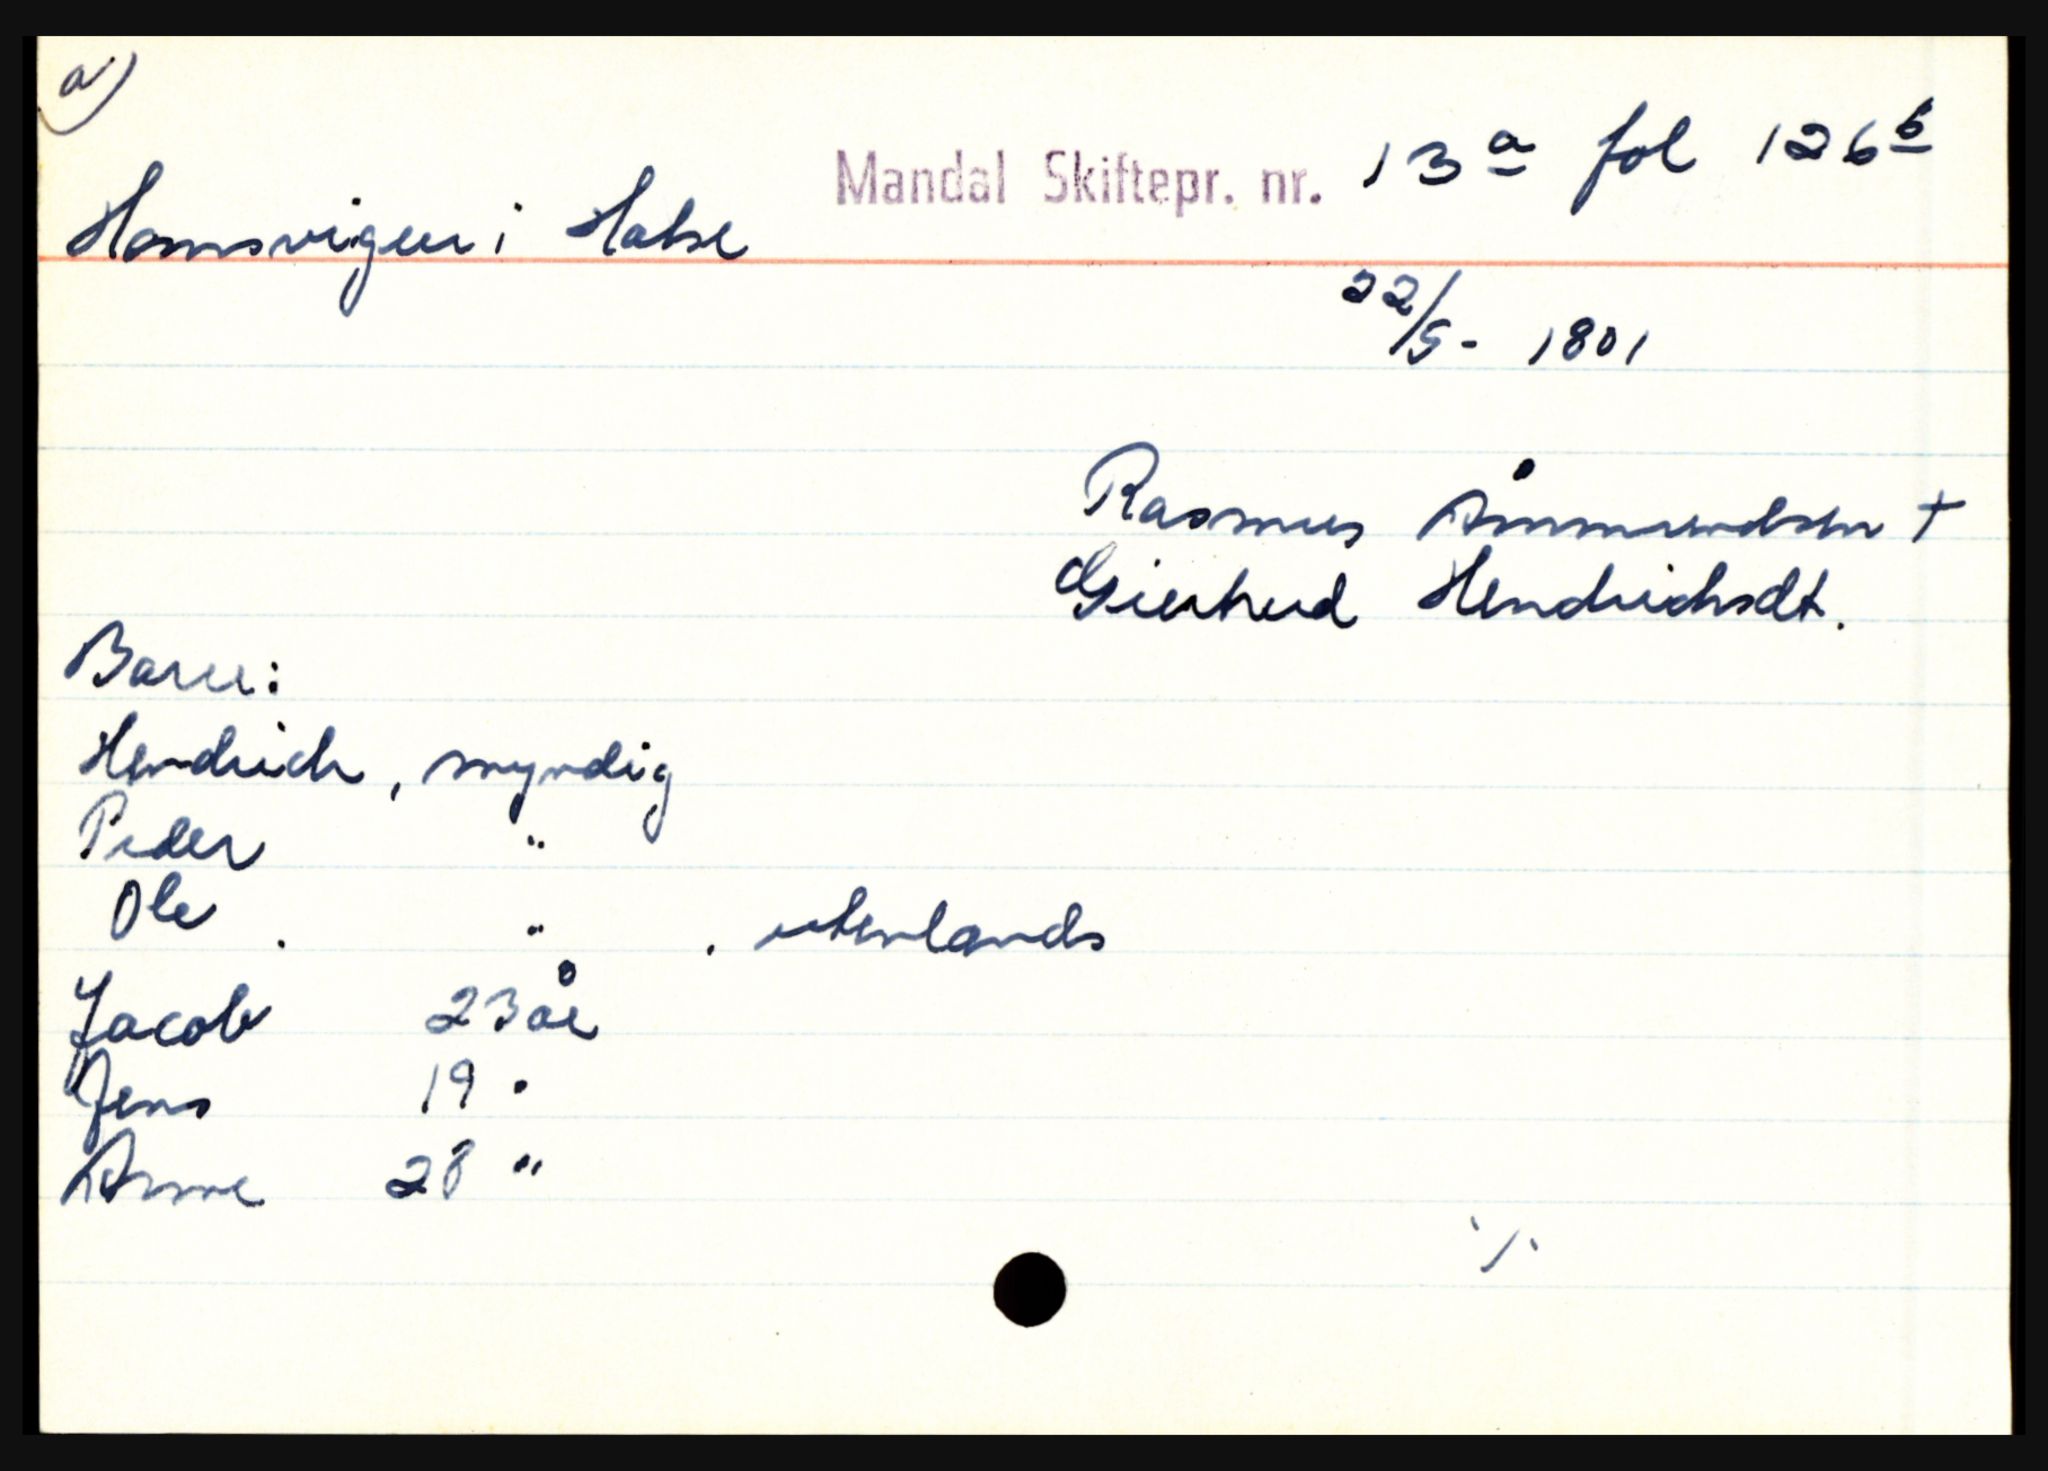 a)
Mandal Skiftepr. nr. 13a fol 126b
Homsvigen i Halse
22/5- 1801
Rasmus Åmmundsen +
Giertrud Hendrichsdt.
Barn:
Hendrich, myndig
Peder "
Ole . " . utenlands
Jacob 23 år
Jens 19 "
Anne 28 "
·/·